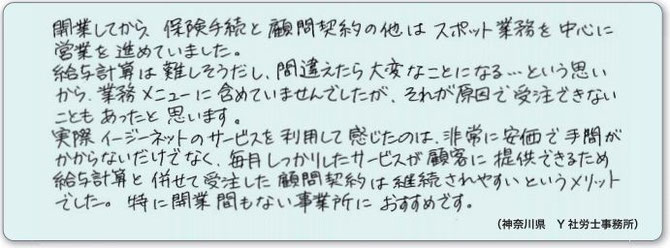 開業してから 保険手続と顧問契約の他は スポット業務を中心に
営業を進めていました。
給与計算は難しそうだし、間違えたら大変なことになる…という思い
から、業務メニューに含めていませんでしたが、それが原因で受注できない
こともあったと思います。
実際イージーネットのサービスを利用して感じたのは、非常に安価で手間が
かからないだけでなく、毎月しっかりしたサービスが顧客に提供できるため
給与計算と併せて受注した顧問契約は継続されやすいというメリット
でした。特に開業間もない事業所におすすめです。
(神奈川県 Y社労士事務所)